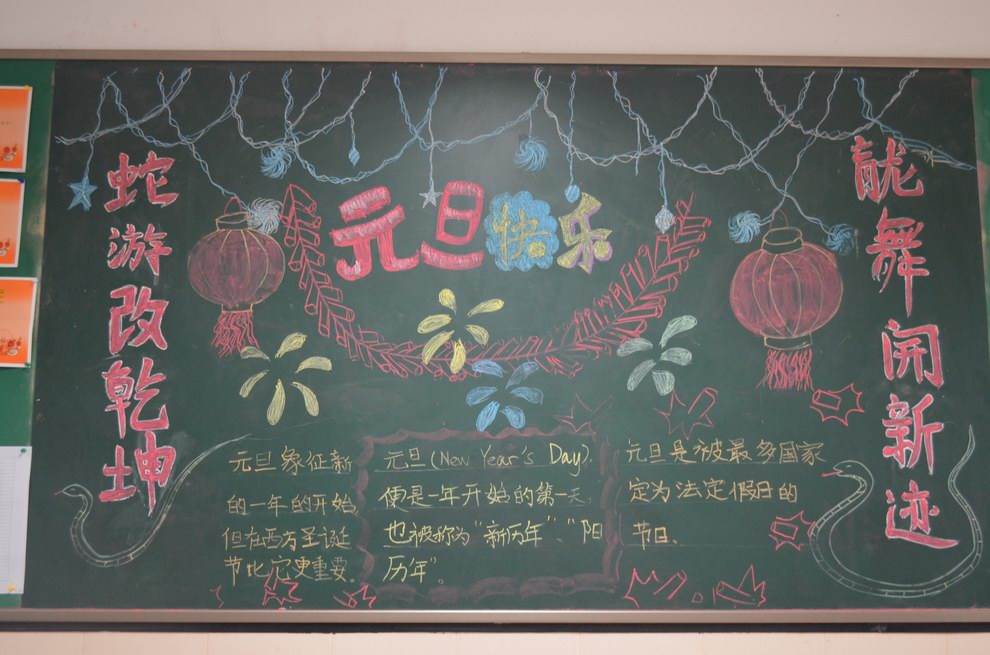 元旦快乐
龙舞開新迹
蛇游改乾坤
元旦象征新
的一年的开始,
但在西方圣诞
节比它更重要。
元旦(New Year's Day),
便是一年开始的第一天,
也被称为"新历年"、"阳
历年"。
元旦是被最多国家
定为法定假日的
节日。